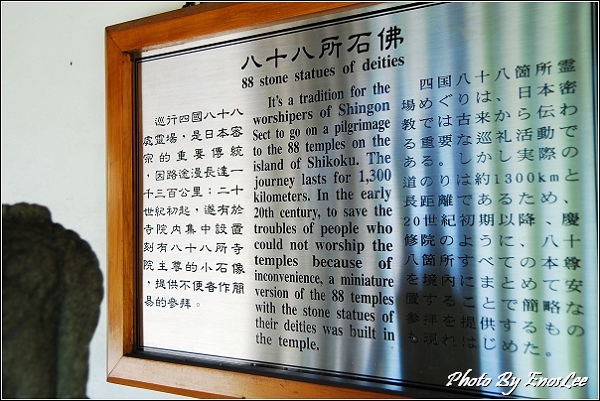 八十八所石佛
88 stone statues of deities
巡行四國八十八
處靈場，是日本密
宗的重要傳統，
因路途漫長達一
千三百公里；二十
世紀初起，遂有於
寺院內集中設置
刻有八十八所寺
院主尊的小石像
，提供不便者作簡
易的參拜。
It's a tradition for the
worshipers of Shingon
Sect to go on a pilgrimage
to the 88 temples on the
island of Shikoku. The
journey lasts for 1,300
kilometers. In the early
20th century, to save the
troubles of people who
could not worship the
temples because of
inconvenience, a miniature
version of the 88 temples
with the stone statues of
their deities was built in
the temple.
四国八十八箇所霊
場めぐりは、日本密
教では古来から伝わ
る重要な巡礼活動で
ある。しかし実際の
道のりは約1300kmと
長距離であるため、
20世紀初期以降、慶
修院のように、八十
八箇所すべての本尊
を境内にまとめて安
置することで簡略な
参拝を提供するもの
も現れはじめた。
Photo By EnosLee